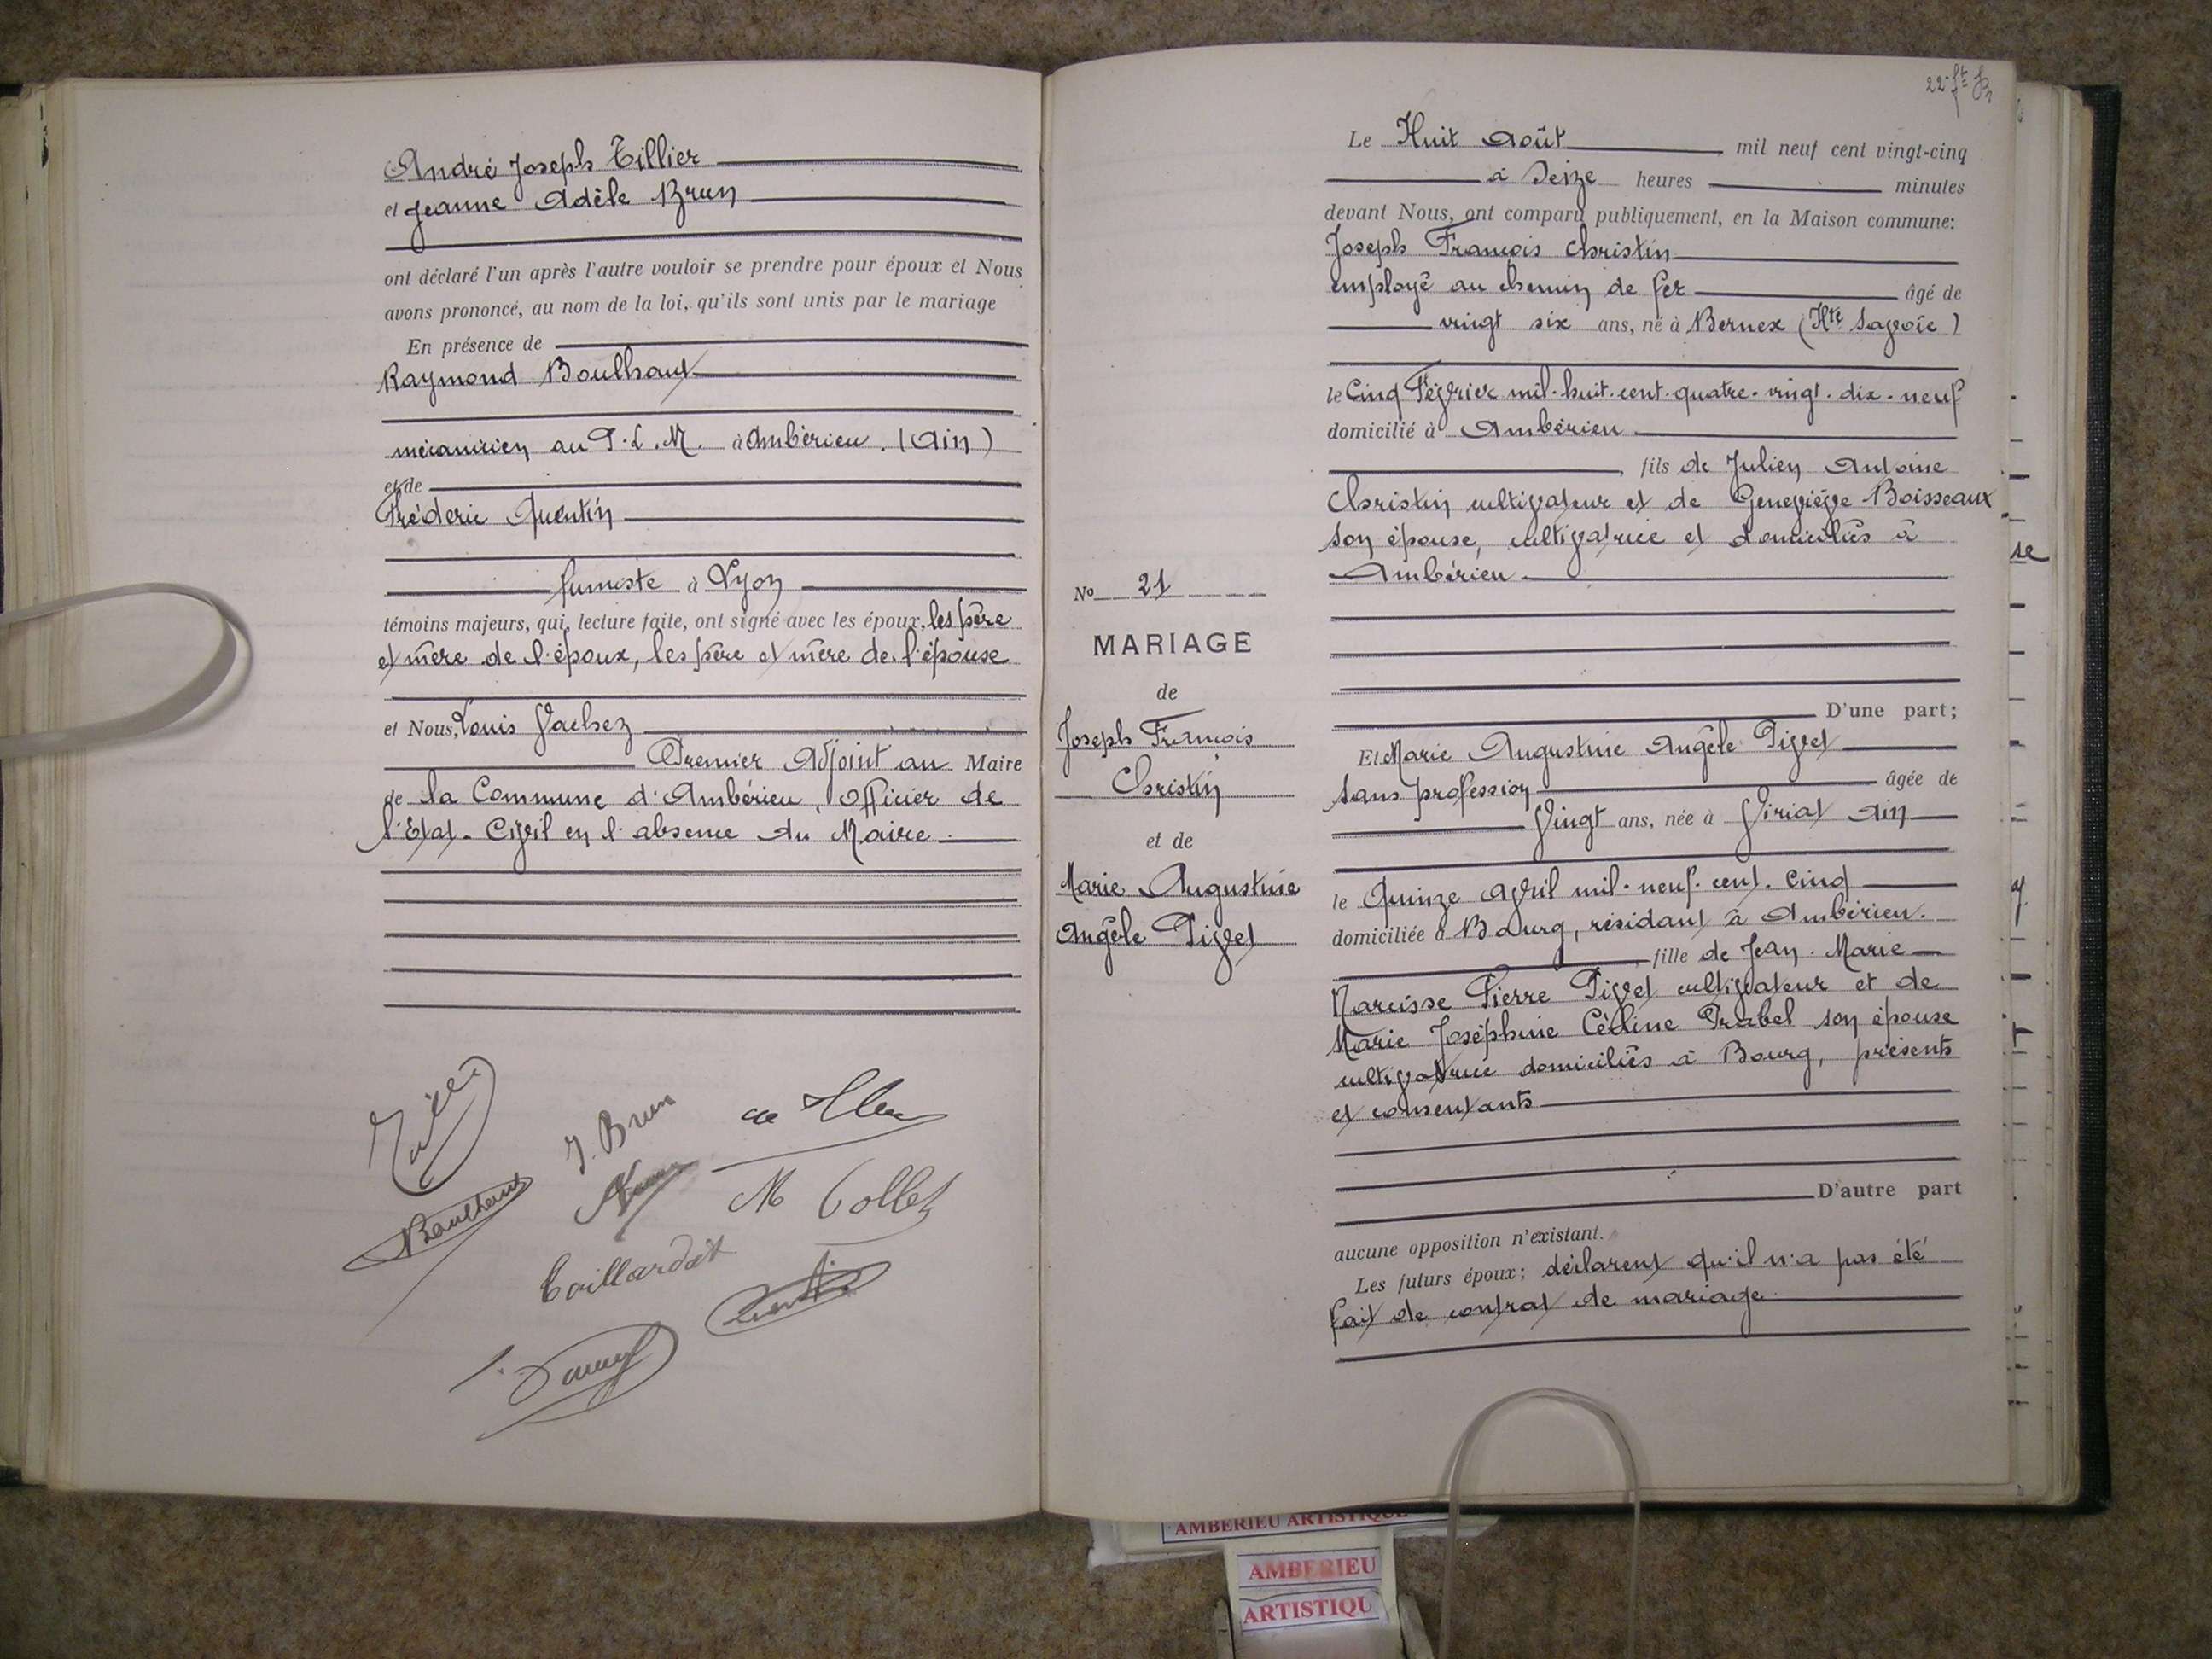 André Joseph Tillier
et Jeanne Adèle Brun
ont déclaré l'un après l'autre vouloir se prendre pour époux et Nous
avons prononcé, au nom de la loi, qu'ils sont unis par le mariage
En présence de
Raymond Boulhaut
mécanicien au P.L.M. à Ambérieu. (Ain)
et de
Fréderic Quentin
fumiste à Lyon
témoins majeurs, qui, lecture faite, ont signé avec les époux, les père
et mère de l'époux, les père et mère de l'épouse
et Nous, Louis Vachez
Premier Adjoint au Maire
de la Commune d'Ambérieu, Officier de
l'Etat-Civil en l'absence du Maire.
J. Brun
M Collet
Taillardat
22 ft
Le Huit Août mil neuf cent vingt-cinq
à Seize heures minutes
devant Nous, ont comparu publiquement, en la Maison commune:
Joseph François Christin
employé au chemin de fer âgé de
vingt six ans, né à Bernex (Hte Savoie)
le Cinq Février mil-huit-cent-quatre-vingt-dix-neuf
domicilié à Ambérieu
fils de Julien Antoine
Christin cultivateur et de Geneviève Boisseaux
son épouse, cultivatrice et domiciliés à
Ambérieu
No 21
MARIAGE
de
Joseph François
Christin
et de
Marie Augustine
Angèle Pivet
D'une part;
Et Marie Augustine Angèle Pivet
sans profession âgée de
Vingt ans, née à Viriat Ain
le Quinze Avril mil-neuf-cent-cinq
domiciliée à Bourg, résidant à Ambérieu.
fille de Jean-Marie
Narcisse Pierre Pivet cultivateur et de
Marie Joséphine Céline Prabel son épouse
cultivatrice domiciliés à Bourg, présents
et consentants
D'autre part
aucune opposition n'existant.
Les futurs époux; déclarent qu'il n'a pas été
fait de contrat de mariage
AMBERIEU ARTISTIQUE
AMBERIEU
ARTISTIQU